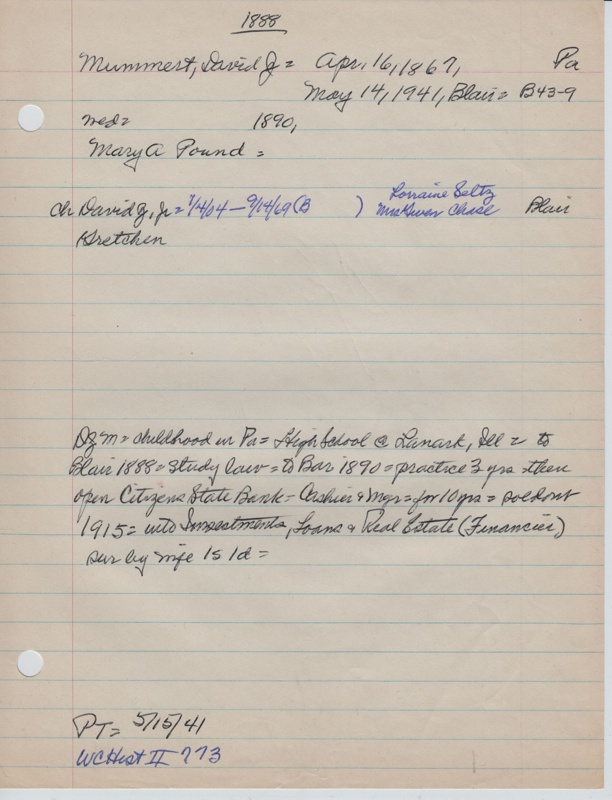 1888
Mummert, David Z = Apr. 16, 1867, Pa
May 14, 1941, Blair = B43-9
med = 1890,
Mary A Pound =
Lorraine Seltz
ch David Z, Jr = 7/4/04 - 9/14/69 (B ) Mrs Chase Blair
Gretchen
DZM = childhood in Pa = High School @ Lanark, Ill = to
Blair 1888 = study law = to Bar 1890 = practice 3 yrs = then
open Citizens State Bank = Cashier & Mgr = for 10 yrs = sold out
1915 = into Investments, Loans & Real Estate (Financier)
sur by wife 1s 1d =
PT = 5/15/41
WC Hist II 773